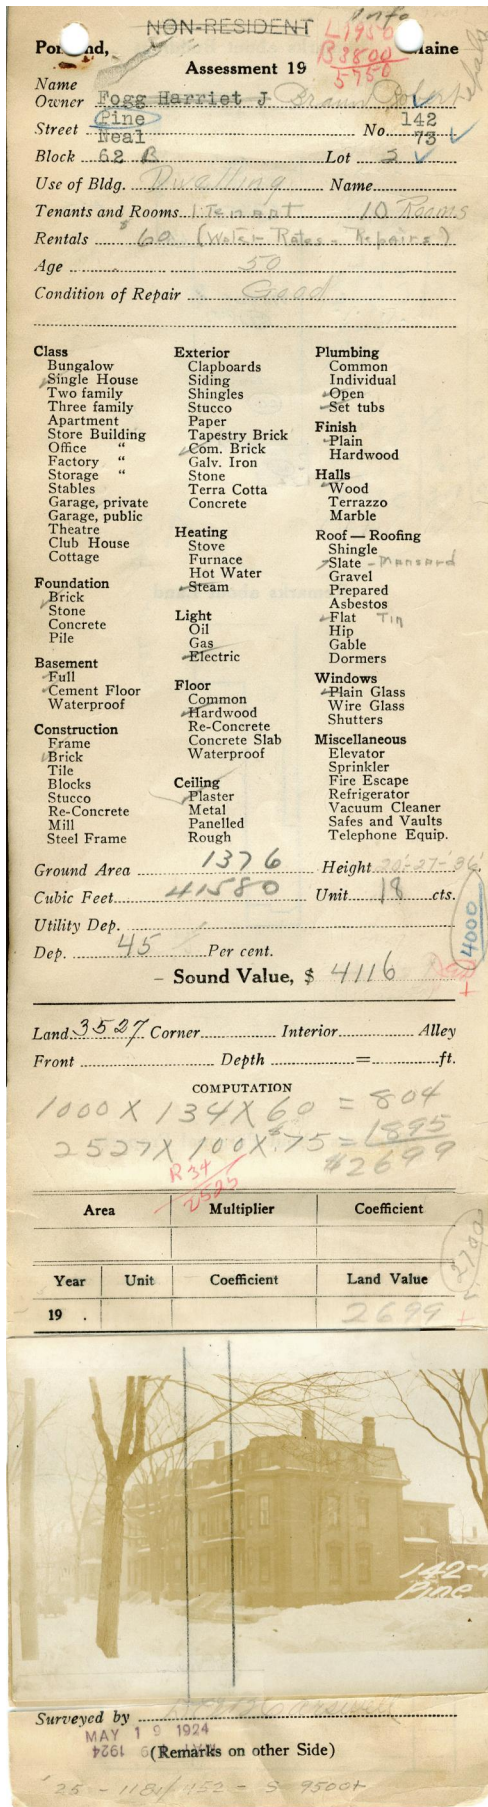 NON-RESIDENT
L 1956
B 3800
5756
Maine
Assessment 19
Name
Owner Fogg Harriet J
Pine 142
Street Neal No. 73
Block 62 B Lot 2
Use of Bldg. Dwelling Name
Tenants and Rooms 1 Tenant 10 Rooms
Rentals $60 (Water Rates - Repairs)
Age 50
Condition of Repair Good
Class
Bungalow
Single House
Two family
Three family
Apartment
Store Building
Office "
Factory "
Storage "
Stables
Garage, private
Garage, public
Theatre
Club House
Cottage
Foundation
Brick
Stone
Concrete
Pile
Basement
Full
Cement Floor
Waterproof
Construction
Frame
Brick
Tile
Blocks
Stucco
Re-Concrete
Mill
Steel Frame
Exterior
Clapboards
Siding
Shingles
Stucco
Paper
Tapestry Brick
Com. Brick
Galv. Iron
Stone
Terra Cotta
Concrete
Heating
Stove
Furnace
Hot Water
Steam
Light
Oil
Gas
Electric
Floor
Common
Hardwood
Re-Concrete
Concrete Slab
Waterproof
Ceiling
Plaster
Metal
Panelled
Rough
Plumbing
Common
Individual
Open
Set tubs
Finish
Plain
Hardwood
Halls
Wood
Terrazzo
Marble
Roof — Roofing
Shingle
Slate - Mansard
Gravel
Prepared
Asbestos
Flat Tin
Hip
Gable
Dormers
Windows
Plain Glass
Wire Glass
Shutters
Miscellaneous
Elevator
Sprinkler
Fire Escape
Refrigerator
Vacuum Cleaner
Safes and Vaults
Telephone Equip.
Ground Area 1376 Height 20'-27'-36'
Cubic Feet 41580 Unit 18 cts.
Utility Dep.
4000
Dep. 45 Per cent.
- Sound Value, $ 4116
Land 3527 Corner Interior Alley
Front Depth = ft.
COMPUTATION
1000 X 134 X 60 = 804
2527 X 100 X .75 = 1895
$2699
R 34
2525
Area Multiplier Coefficient
2700
Year Unit Coefficient Land Value
19 . 2699
142-4
Pine
Surveyed by
MAY 19 1924
(Remarks on other Side)
'25 - 1181/452 - S 9500+